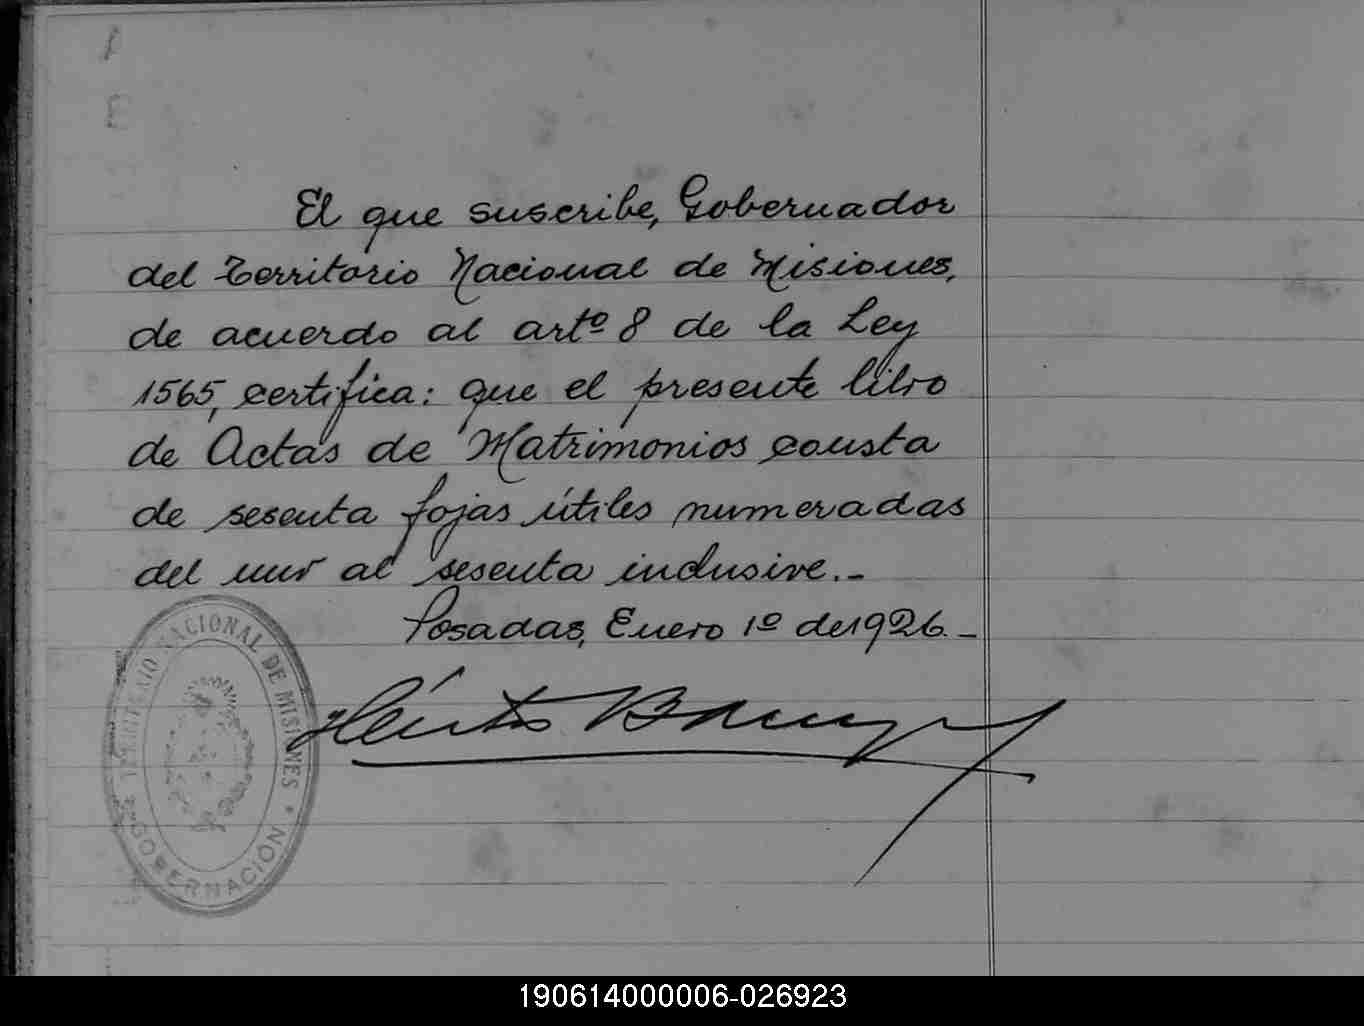 El que suscribe, Gobernador
del Territorio Nacional de Misiones,
de acuerdo al artº 8 de la Ley
1565, certifica: que el presente libro
de Actas de Matrimonios consta
de sesenta fojas útiles numeradas
del uno al sesenta inclusive.-
Posadas, Enero 1º de 1926.-
Héctor Barreyro
TERRITORIO NACIONAL DE MISIONES
GOBERNACIÓN
190614000006-026923